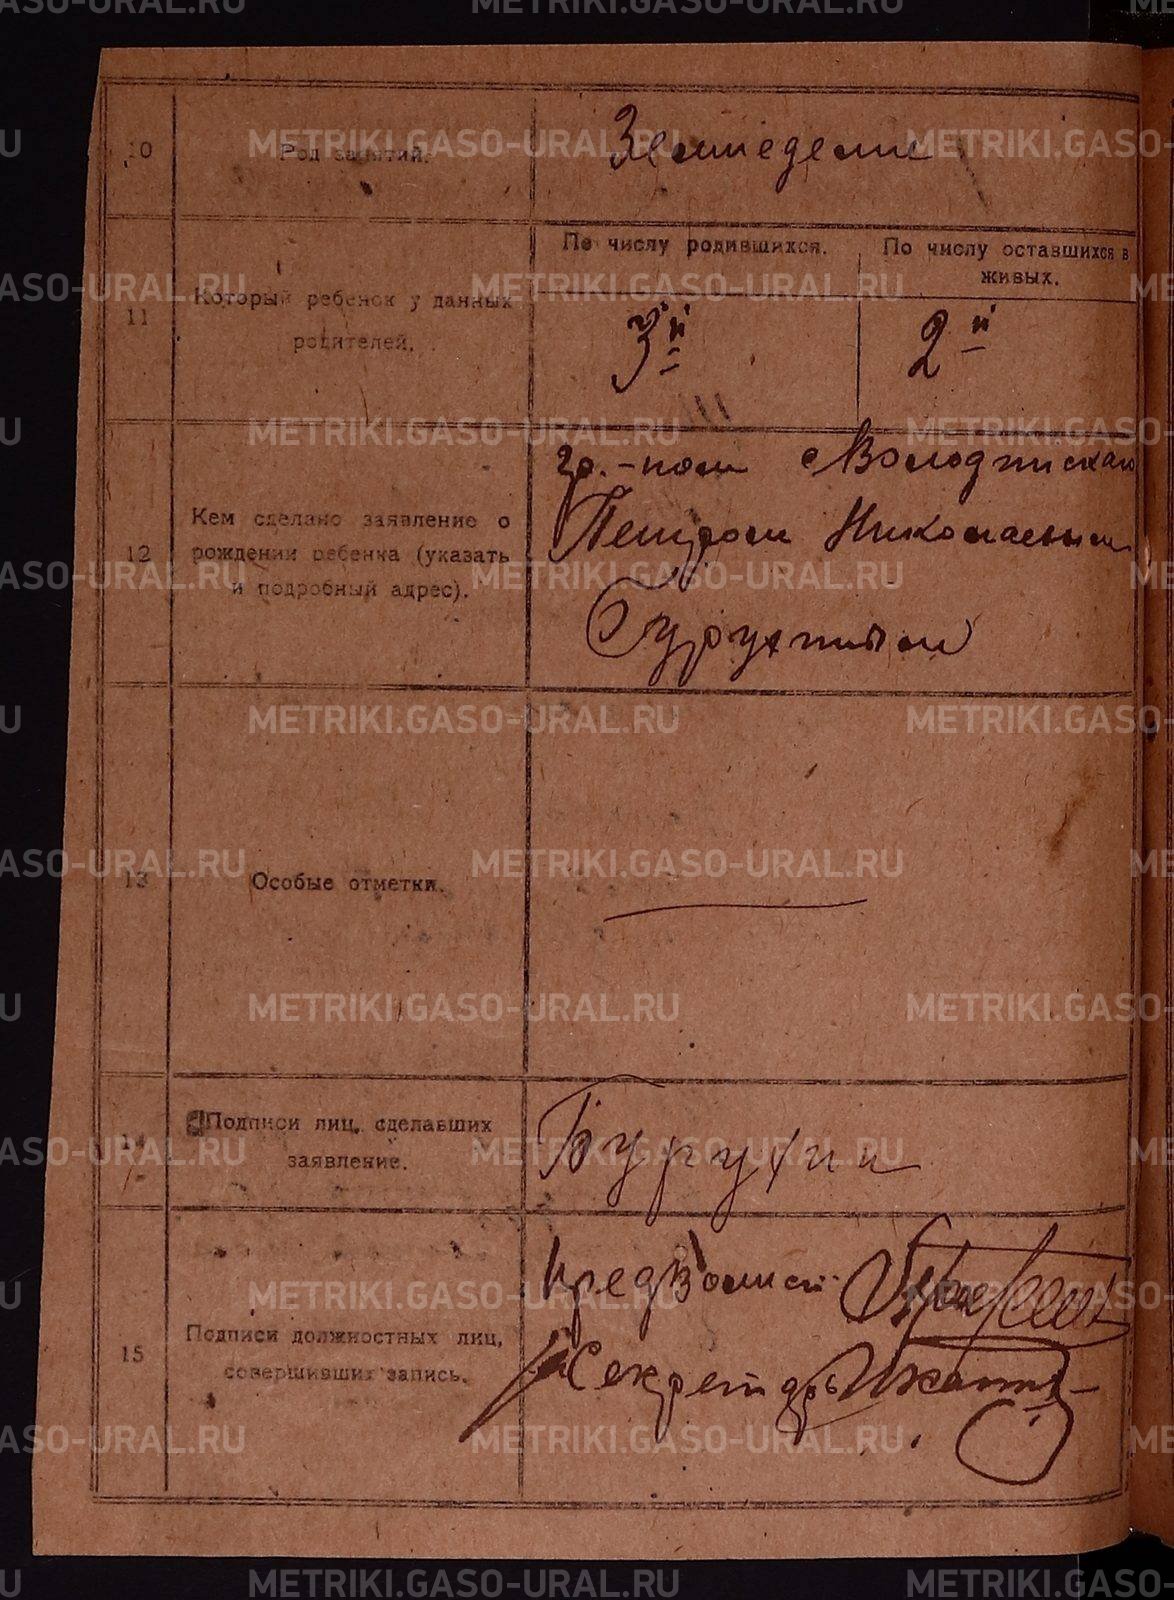 10
Род занятий.
Земледелие
11
Который ребенок у данных
родителей.
По числу родившихся.
3й
По числу оставшихся в
живых.
2й
12
Кем сделано заявление о
рождении ребенка (указать
и подробный адрес).
гр.-ном с Вологжискаго
Петром Николаевым
Бурухиным
13
Особые отметки.
14
Подписи лиц, сделавших
заявление.
Бурухин
15
Подписи должностных лиц,
совершивших запись.
Предволисп.
Секретарь
METRIKI.GASO-URAL.RU